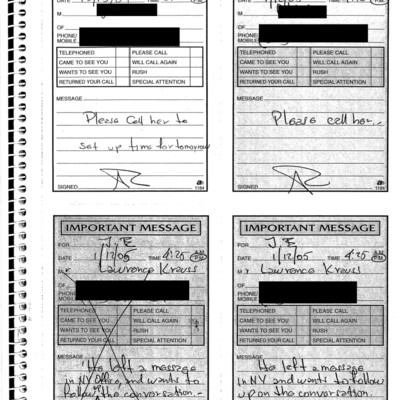 DATE TIME
M
OF
PHONE/
MOBILE
TELEPHONED PLEASE CALL
CAME TO SEE YOU WILL CALL AGAIN
WANTS TO SEE YOU RUSH
RETURNED YOUR CALL SPECIAL ATTENTION
MESSAGE
Please Call her to
set up time for tomorrow
SIGNED
1184
DATE TIME
M
OF
PHONE/
MOBILE
TELEPHONED PLEASE CALL
CAME TO SEE YOU WILL CALL AGAIN
WANTS TO SEE YOU RUSH
RETURNED YOUR CALL SPECIAL ATTENTION
MESSAGE
Please call her..
SIGNED
1184
IMPORTANT MESSAGE
FOR J.E
DATE 1/12/05 TIME 4:25 AM PM
M r Lawrence Krauss
OF
PHONE/
MOBILE
TELEPHONED PLEASE CALL
CAME TO SEE YOU WILL CALL AGAIN
WANTS TO SEE YOU RUSH
RETURNED YOUR CALL SPECIAL ATTENTION
MESSAGE
He left a message
in NY Office, and wants to
follow the conversation.-
IMPORTANT MESSAGE
FOR J.E
DATE 1/12/05 TIME 4:25 AM PM
M r Lawrence Krauss
OF
PHONE/
MOBILE
TELEPHONED PLEASE CALL
CAME TO SEE YOU WILL CALL AGAIN
WANTS TO SEE YOU RUSH
RETURNED YOUR CALL SPECIAL ATTENTION
MESSAGE
He left a message
in NY and wants to follow
up on the conversation.